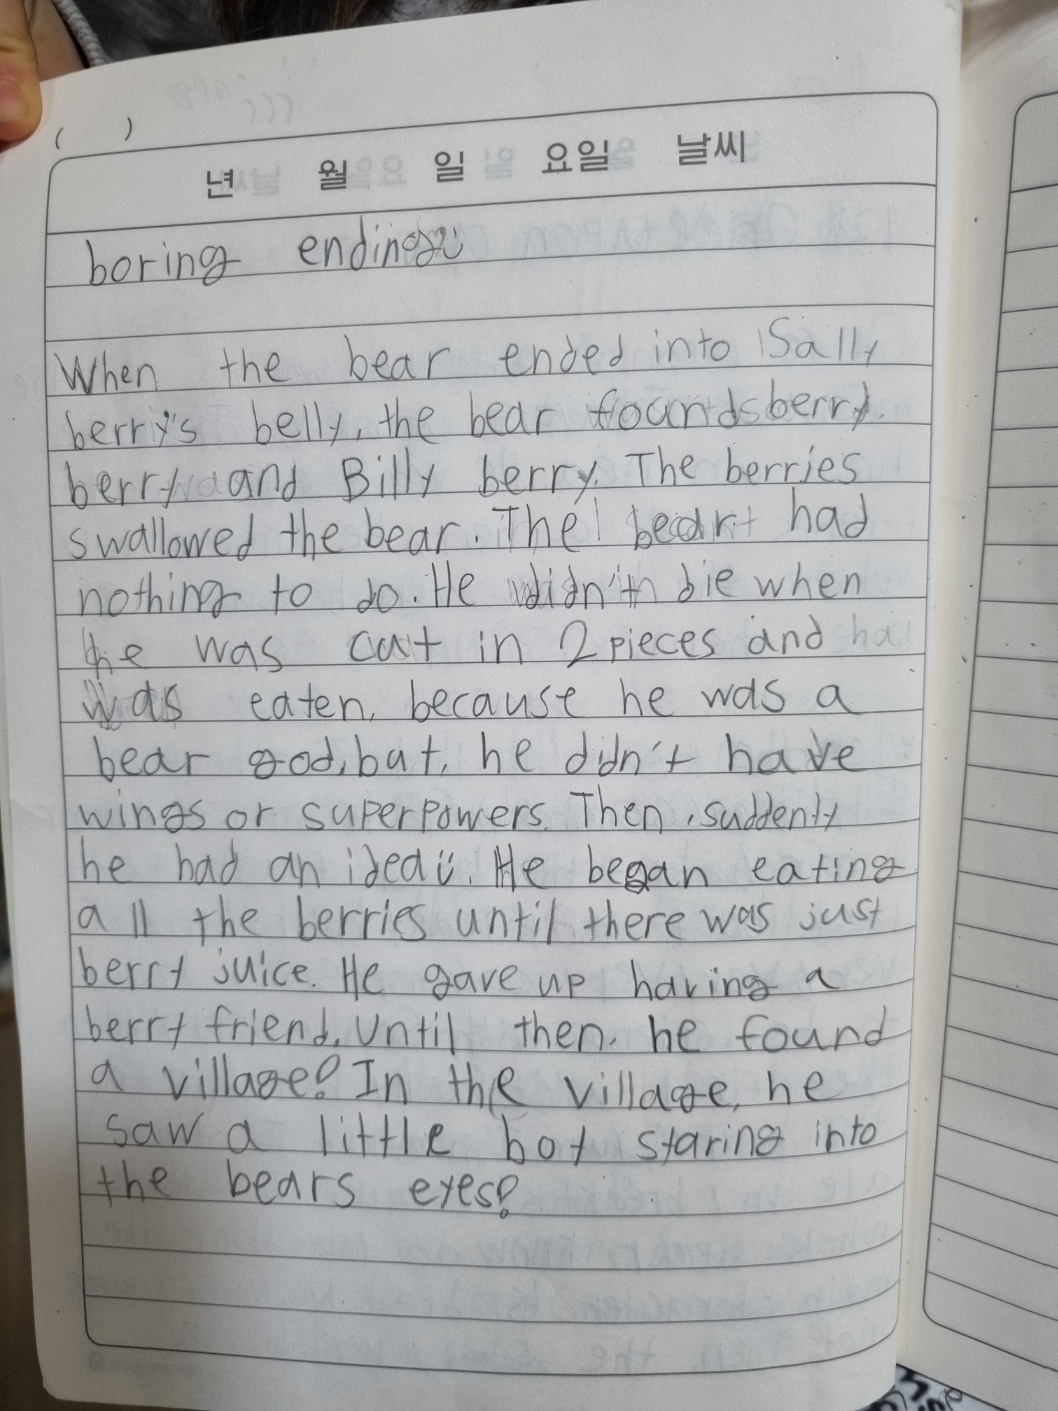 ( )
년 월 일 요일 날씨
boring ending
When the bear ended into Sally
berry's belly, the bear founds berry
berry and Billy berry. The berries
swallowed the bear. The bear had
nothing to do. He didn't die when
he was cut in 2 pieces and
was eaten, because he was a
bear god, but, he didn't have
wings or superpowers. Then, suddenly
he had an idea. He began eating
all the berries until there was just
berry juice. He gave up having a
berry friend, until then, he found
a village! In the village, he
saw a little boy staring into
the bears eyes!